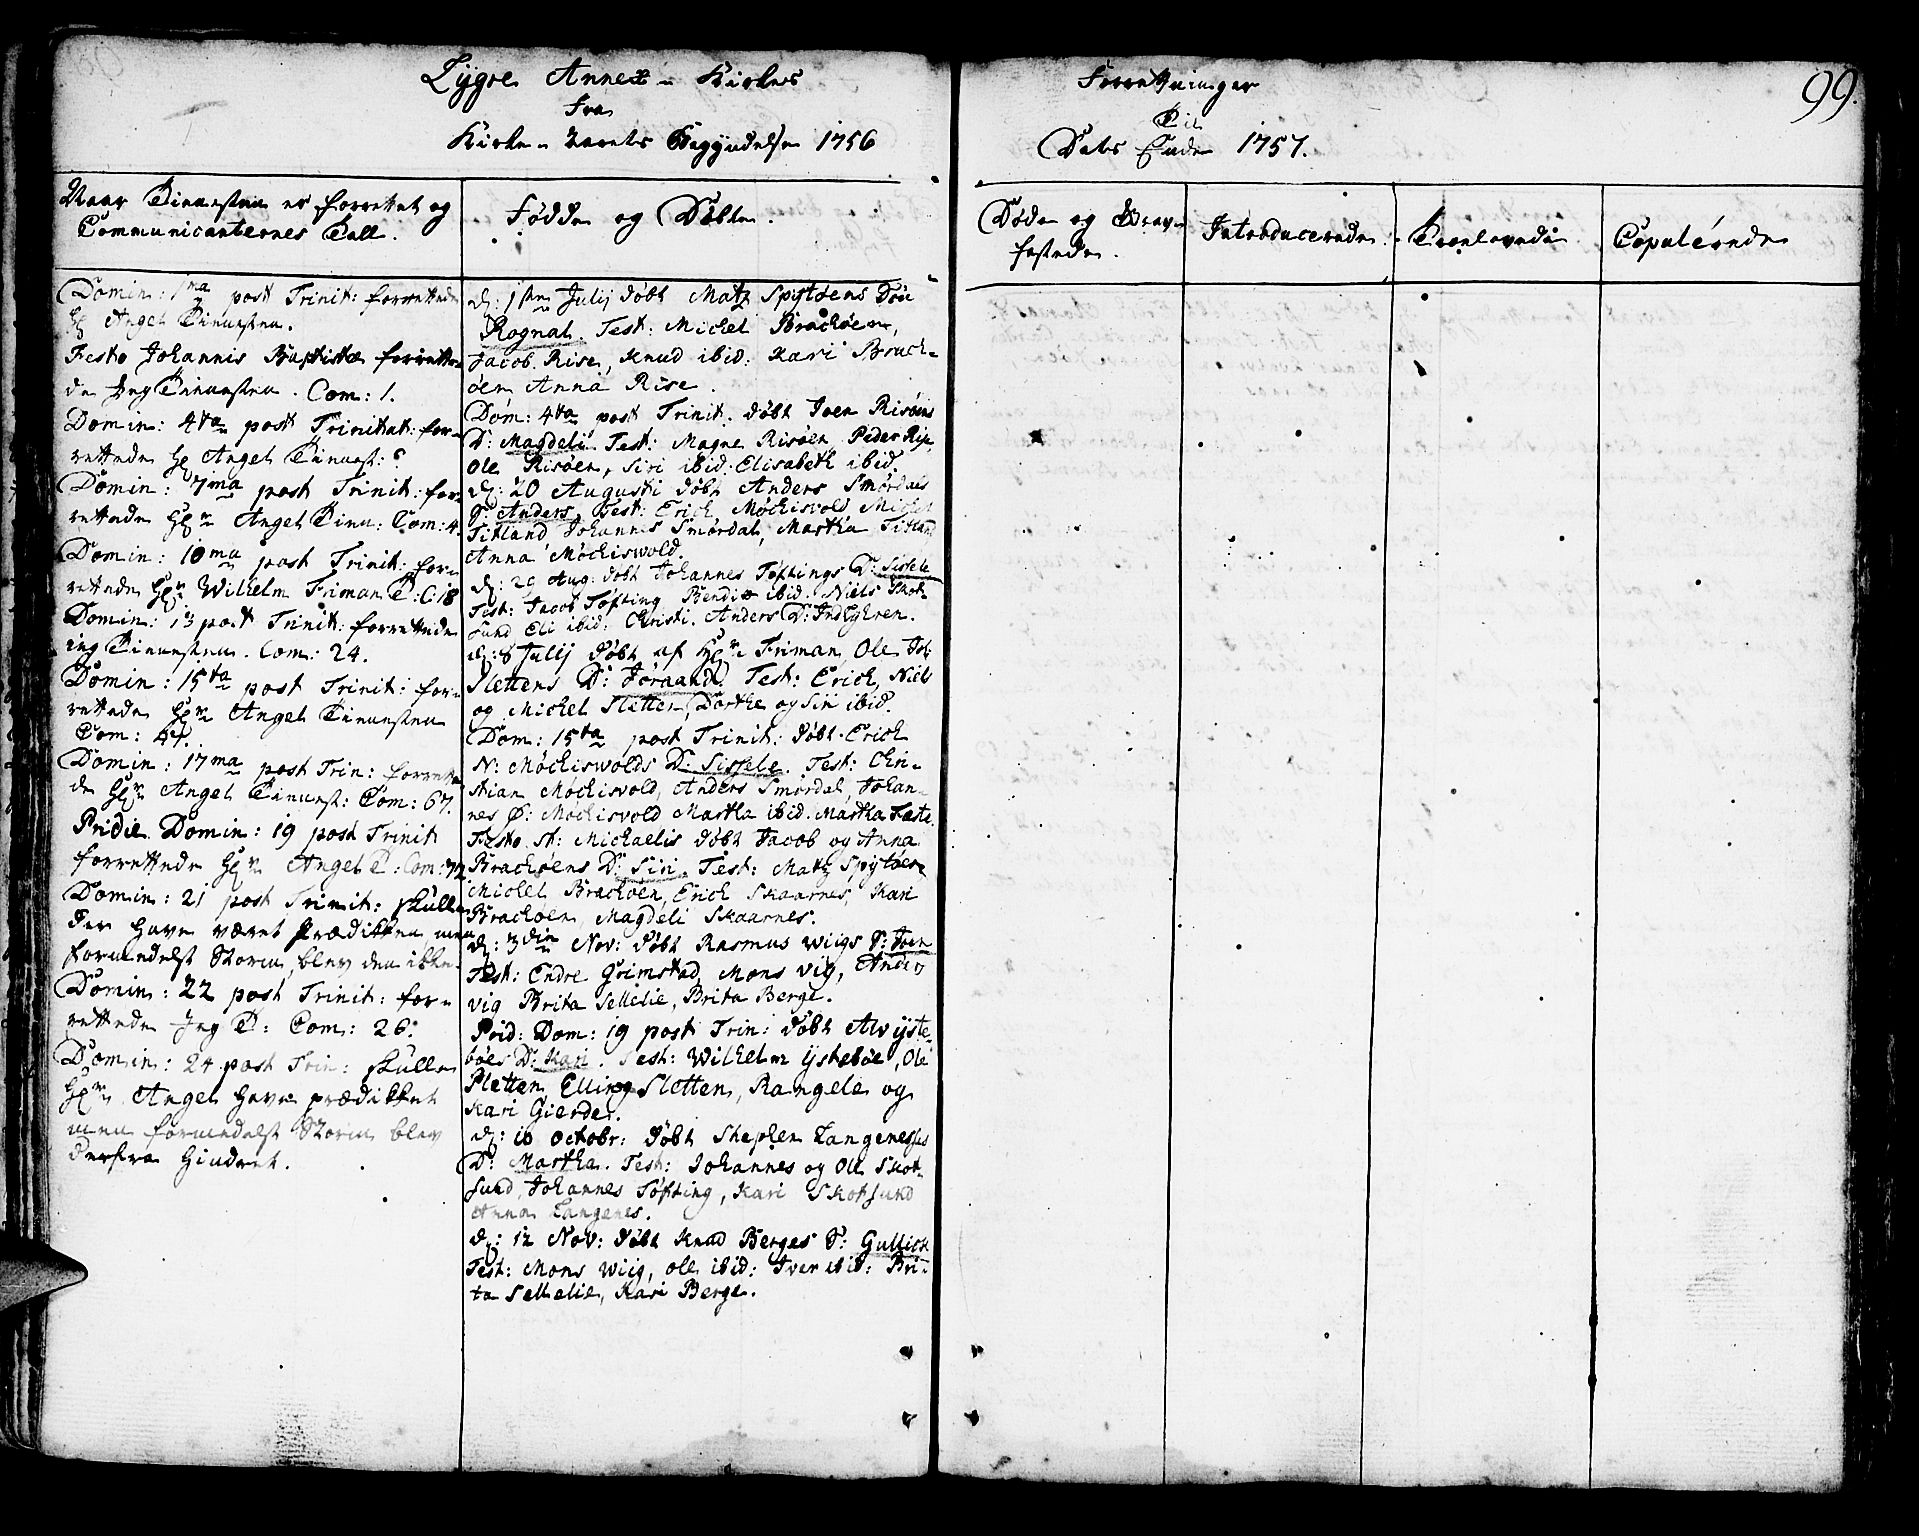 Lygre Annex-Kirkes
Fra
Kirke-Aarets Begyndelse 1756
Forretninger
Til
Dets Ende 1757.
99.
Naar Tienesten er forrettet og
Communicanternes Tall.
Fødde og Døbte.
Døde og Grav-
festede.
Introducerede.
Troelovede
Copulerede
Domin: 1ma post Trinit: forrettede
Hr Angel Tienesten.
Festo Johannis Baptistæ forrette-
de Jeg Tienesten. Com: 1.
Domin: 4ta post Trinitat: for-
rettede Hr Angel Tienest:
Domin: 7ma post Trinit: for-
rettede Hr Angel Tien: Com: 4.
Domin: 10ma post Trinit: for-
rettede Hr Wilhelm Friman T: C: 18
Domin: 13 post Trinit: forrettede
jeg Tienesten. Com: 24.
Domin: 15ta post Trinit: for-
rettede Hr Angel Tienesten
Com: 47.
Domin: 17ma post Trin: forrette-
de Hr Angel Tienest: Com: 67.
Pridie Domin: 19 post Trinit
forrettede Hr Angel T: Com: 72
Domin: 21 post Trinit: skulle
der have været Prædikken, men
formedelst Storm, blev den ikke.
Domin: 22 post Trinit: for-
rettede Jeg T: Com: 26.
Domin: 24 post Trin: skulle
Hr Angel have prædikket
men formedelst Storm blev
derfra hindret.
d: 1ste Julij døbt Matz Spytøens Søn
Rognal. Test: Michel Brachøen,
Jacob Rise, Knud ibid: Kari Brach-
øen Anna Rise.
Dom: 4ta post Trinit. døbt Joen Risøens
D: Magdeli Test: Magne Risøen Peder Rise,
Ole Risøen, Siri ibid: Elisabeth ibid.
d: 20 Augusti døbt Anders Smørdals
S: Anders. Test: Erich Møchisvold Michel
Titland Johannes Smørdal, Martha Titland
Anna Møchiswold.
d: 20 Aug: døbt Johannes Tøftings D: Sissele
Test: Jacob Tøfting Bendix ibid. Niels Skot-
sund Eli ibid: Christi. Anders D: Indlyhren.
d: 8 Julij døbt af Hr Friman, Ole
Slettens D: Joraand. Test: Erich, Niels
og Michel Sletten, Dorthe og Siri ibid.
Dom: 15ta post Trinit: døbt Erich
N: Møchiswolds D: Sissele. Test: Chri-
stian Møchisvold, Anders Smørdal, Johan-
nes Ø: Møchisvold Martha ibid. Martha Fæste.
Festo St: Michaelis døbt Jacob og Anna
Brachøens D: Siri. Test: Matz Spytøen
Michel Brachøen, Erich Skaarnes, Kari
Brachøen, Magdeli Skaarnes.
d: 3die Nov: døbt Rasmus Wiigs S: Joen
Test: Endre Grimstad, Mons Vig, Anders
Vig Brita Sellelie, Brita Berge.
Prid: Dom: 19 post Trin: døbt Al Yste-
bøes D: Kari. Test: Wilhelm Ystebøe, Ole
Sletten, Elling Sletten, Rangele og
Kari Gierde.
d: 10 Octobr: døbt Stephen Langenesses
D: Martha. Test: Johannes og Ole Skot-
sund, Johannes Tøfting, Kari Skotsund
Anna Langenes.
d: 12 Nov: døbt Knud Berges S: Gullich
Test: Mons Wiig, Ole ibid: Iver ibid: Bri-
ta Sellelie, Kari Berge.